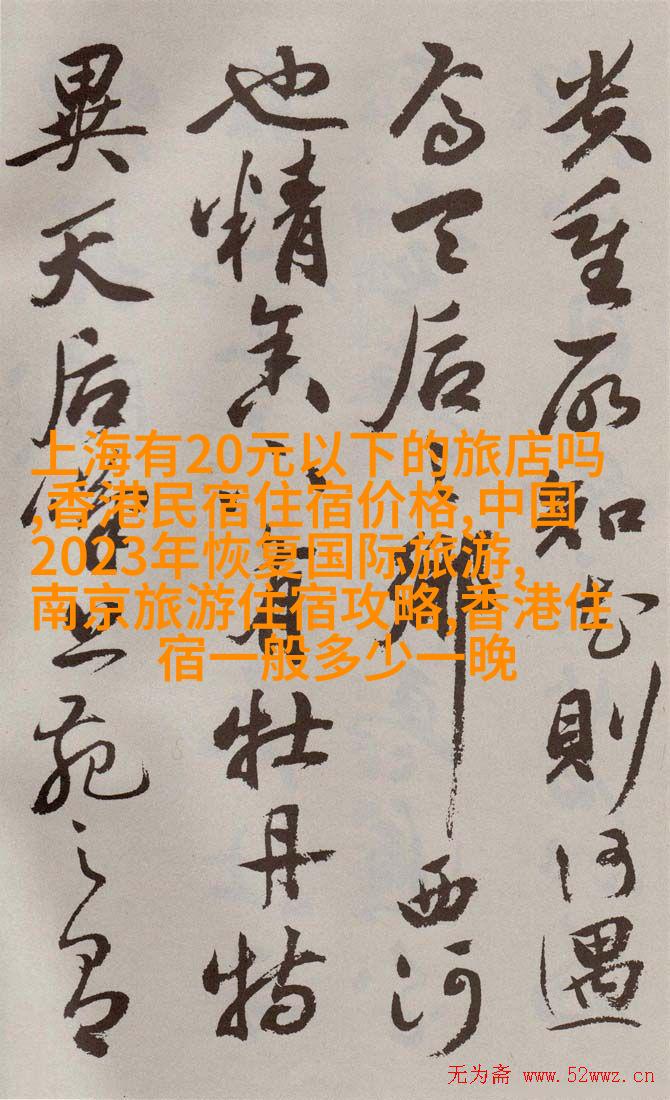 贵重所知花則何遇
焉天后之鄉西河
也精舍下有牡丹特
異天后嘆上苑之有
上海有20元以下的旅店吗
,香港民宿住宿价格,中国
2023年恢复国际旅游,
南京旅游住宿攻略,香港住
宿一般多少一晚
无为斋 www.52wwz.cn